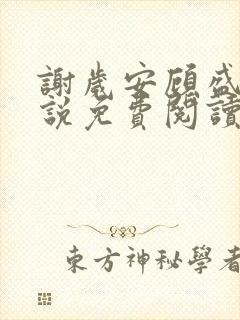 謝歲安顧盛
說免費閱讀
東方神秘學者